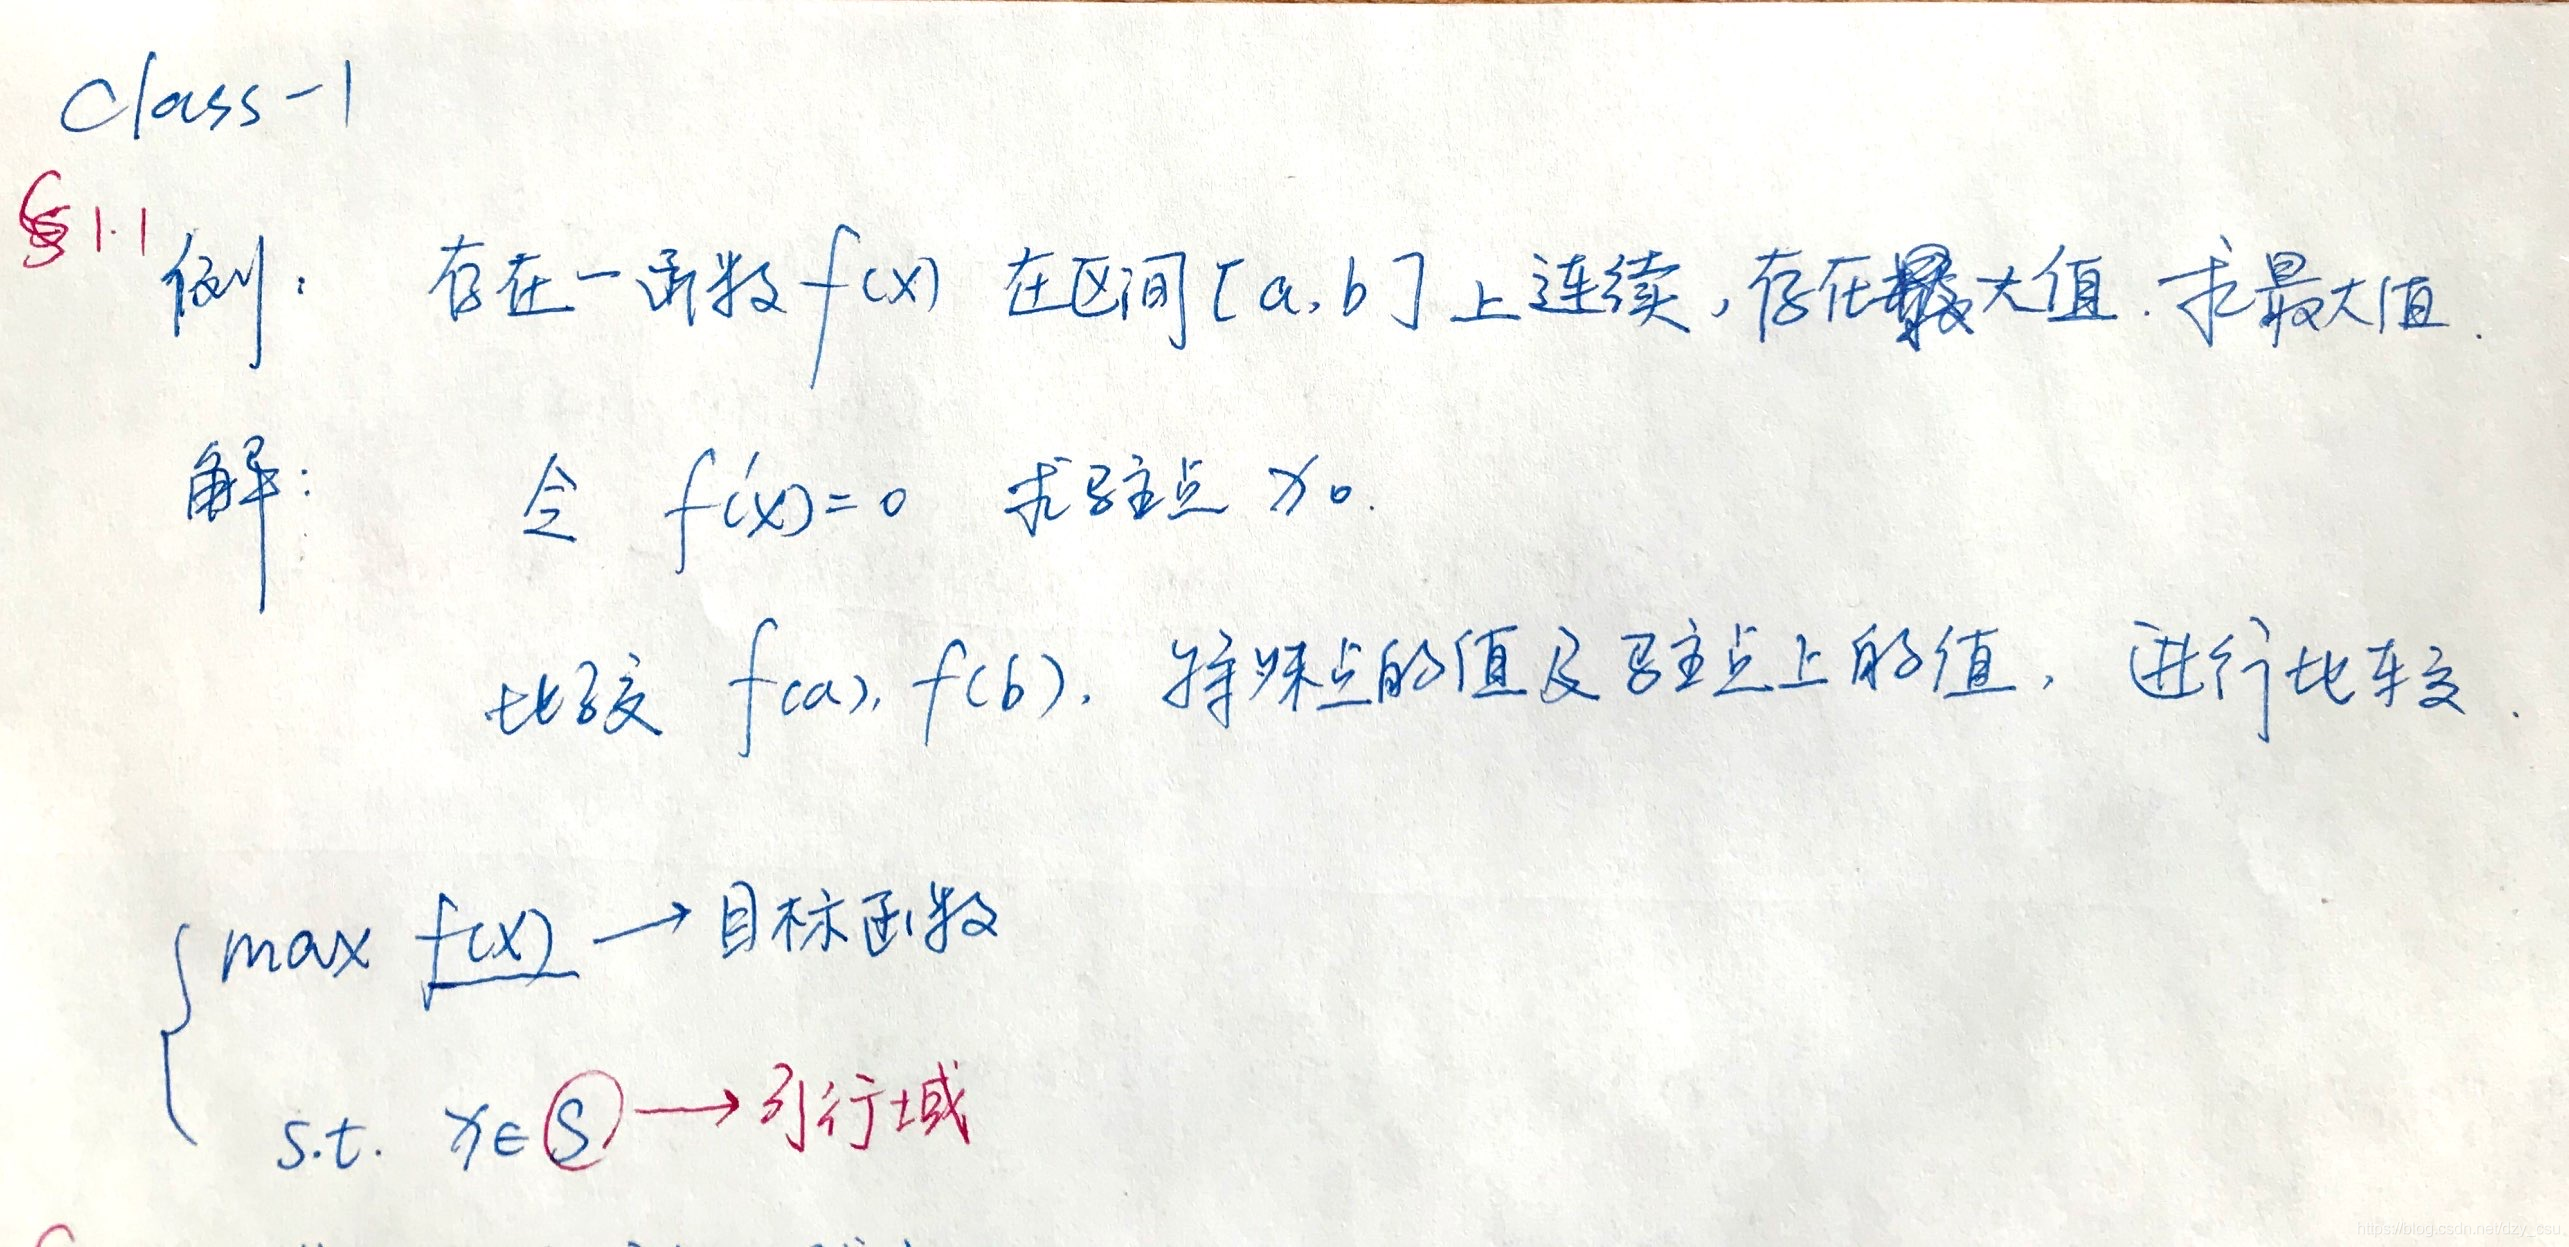 Class-1
§1.1
例： 存在一函数f(x) 在区间[a,b]上连续，存在最大值.求最大值.
解： 令 f'(x)=0 求驻点 x₀.
比较 f(a), f(b), 特殊点的值及驻点上的值，进行比较.
max f(x) → 目标函数
s.t. x∈S → 可行域
https://blog.csdn.net/dzy_csu